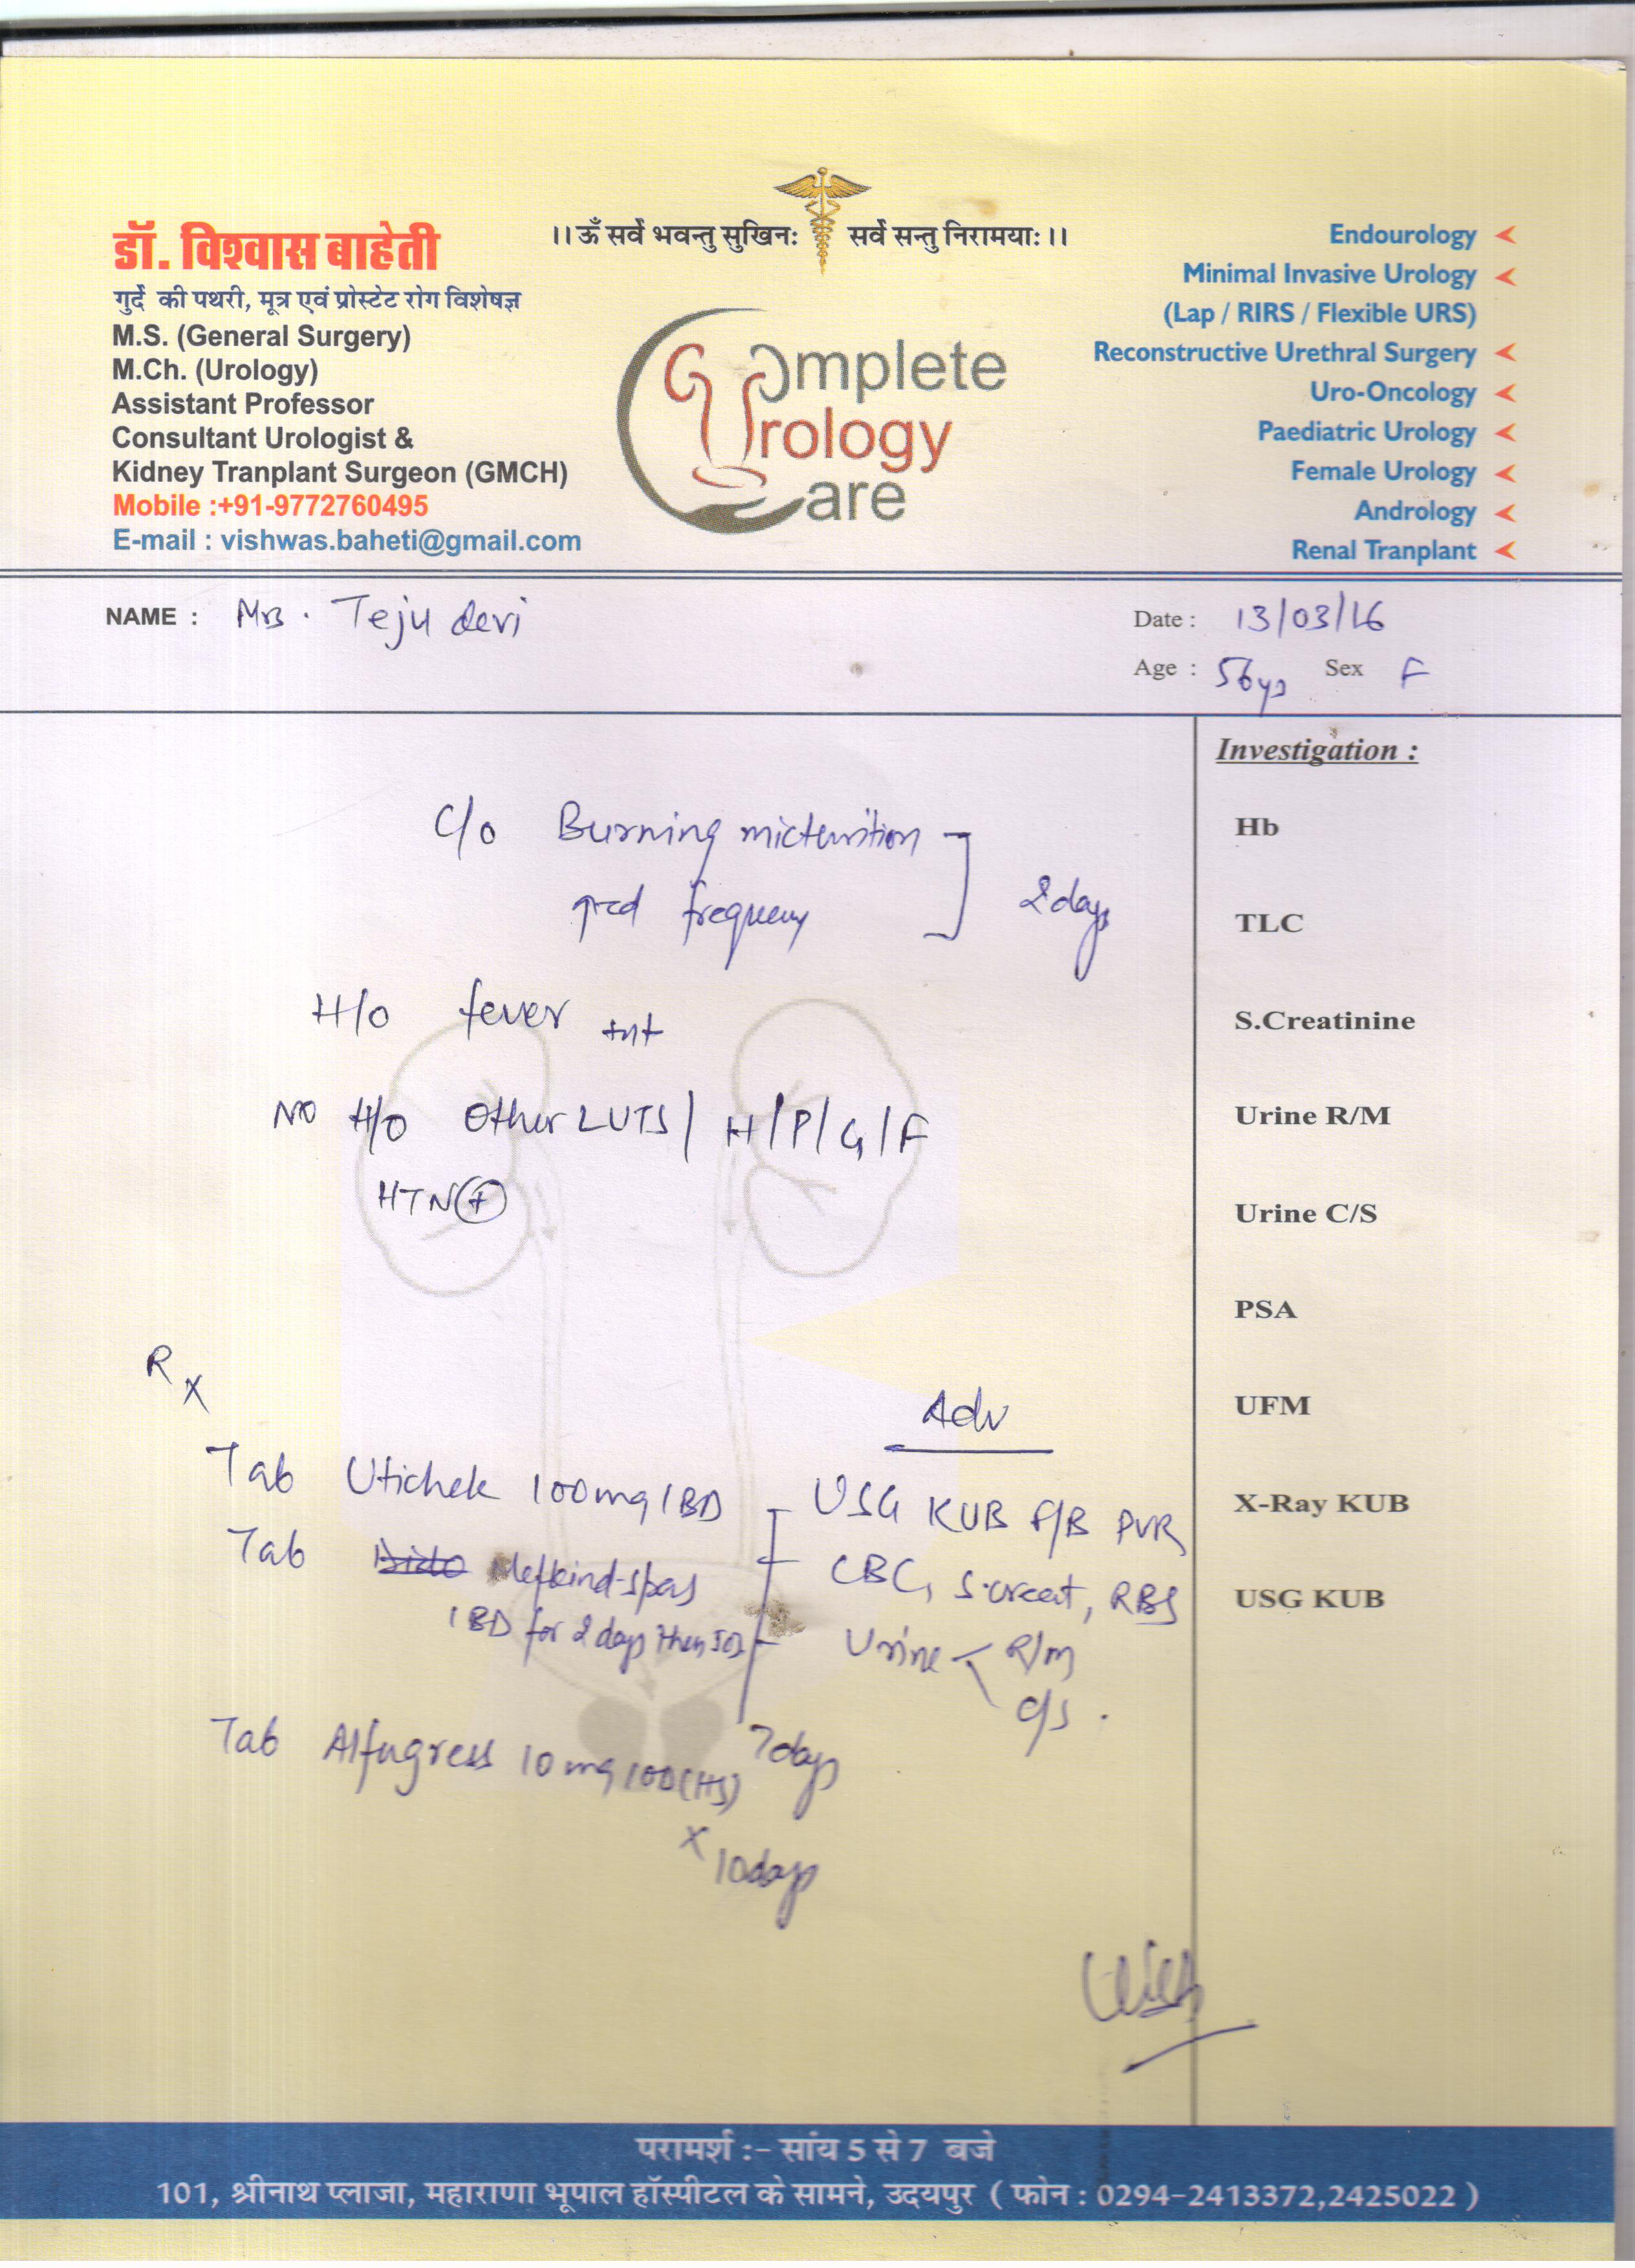 ।। ॐ सर्वे भवन्तु सुखिनः सर्वे सन्तु निरामयाः ।।
डॉ. विश्वास बाहेती
गुर्दे की पथरी, मूत्र एवं प्रोस्टेट रोग विशेषज्ञ
M.S. (General Surgery)
M.Ch. (Urology)
Assistant Professor
Consultant Urologist &
Kidney Tranplant Surgeon (GMCH)
Mobile :+91-9772760495
E-mail : vishwas.baheti@gmail.com
Complete
Urology
Care
Endourology
Minimal Invasive Urology
(Lap / RIRS / Flexible URS)
Reconstructive Urethral Surgery
Uro-Oncology
Paediatric Urology
Female Urology
Andrology
Renal Tranplant
NAME : Mrs. Teju devi
Date : 13/03/16
Age : 56yrs Sex F
C/o Burning micturition
↑ced frequency
2 days
H/o fever +nt
NO H/o Other LUTS / H/P/G/F
HTN (+)
Rx
Tab Utichek 100mg 1BD
Tab Mefkind-spas
1 BD for 2 days then SOS
7 days
Tab Alfugress 10 mg 1OD (HS)
x 10 days
Adv
USG KUB F/B PVR
CBC, S.creat, RBS
Urine R/m
C/s.
Investigation :
Hb
TLC
S.Creatinine
Urine R/M
Urine C/S
PSA
UFM
X-Ray KUB
USG KUB
परामर्श :– सांय 5 से 7 बजे
101, श्रीनाथ प्लाजा, महाराणा भूपाल हॉस्पीटल के सामने, उदयपुर ( फोन : 0294-2413372,2425022 )